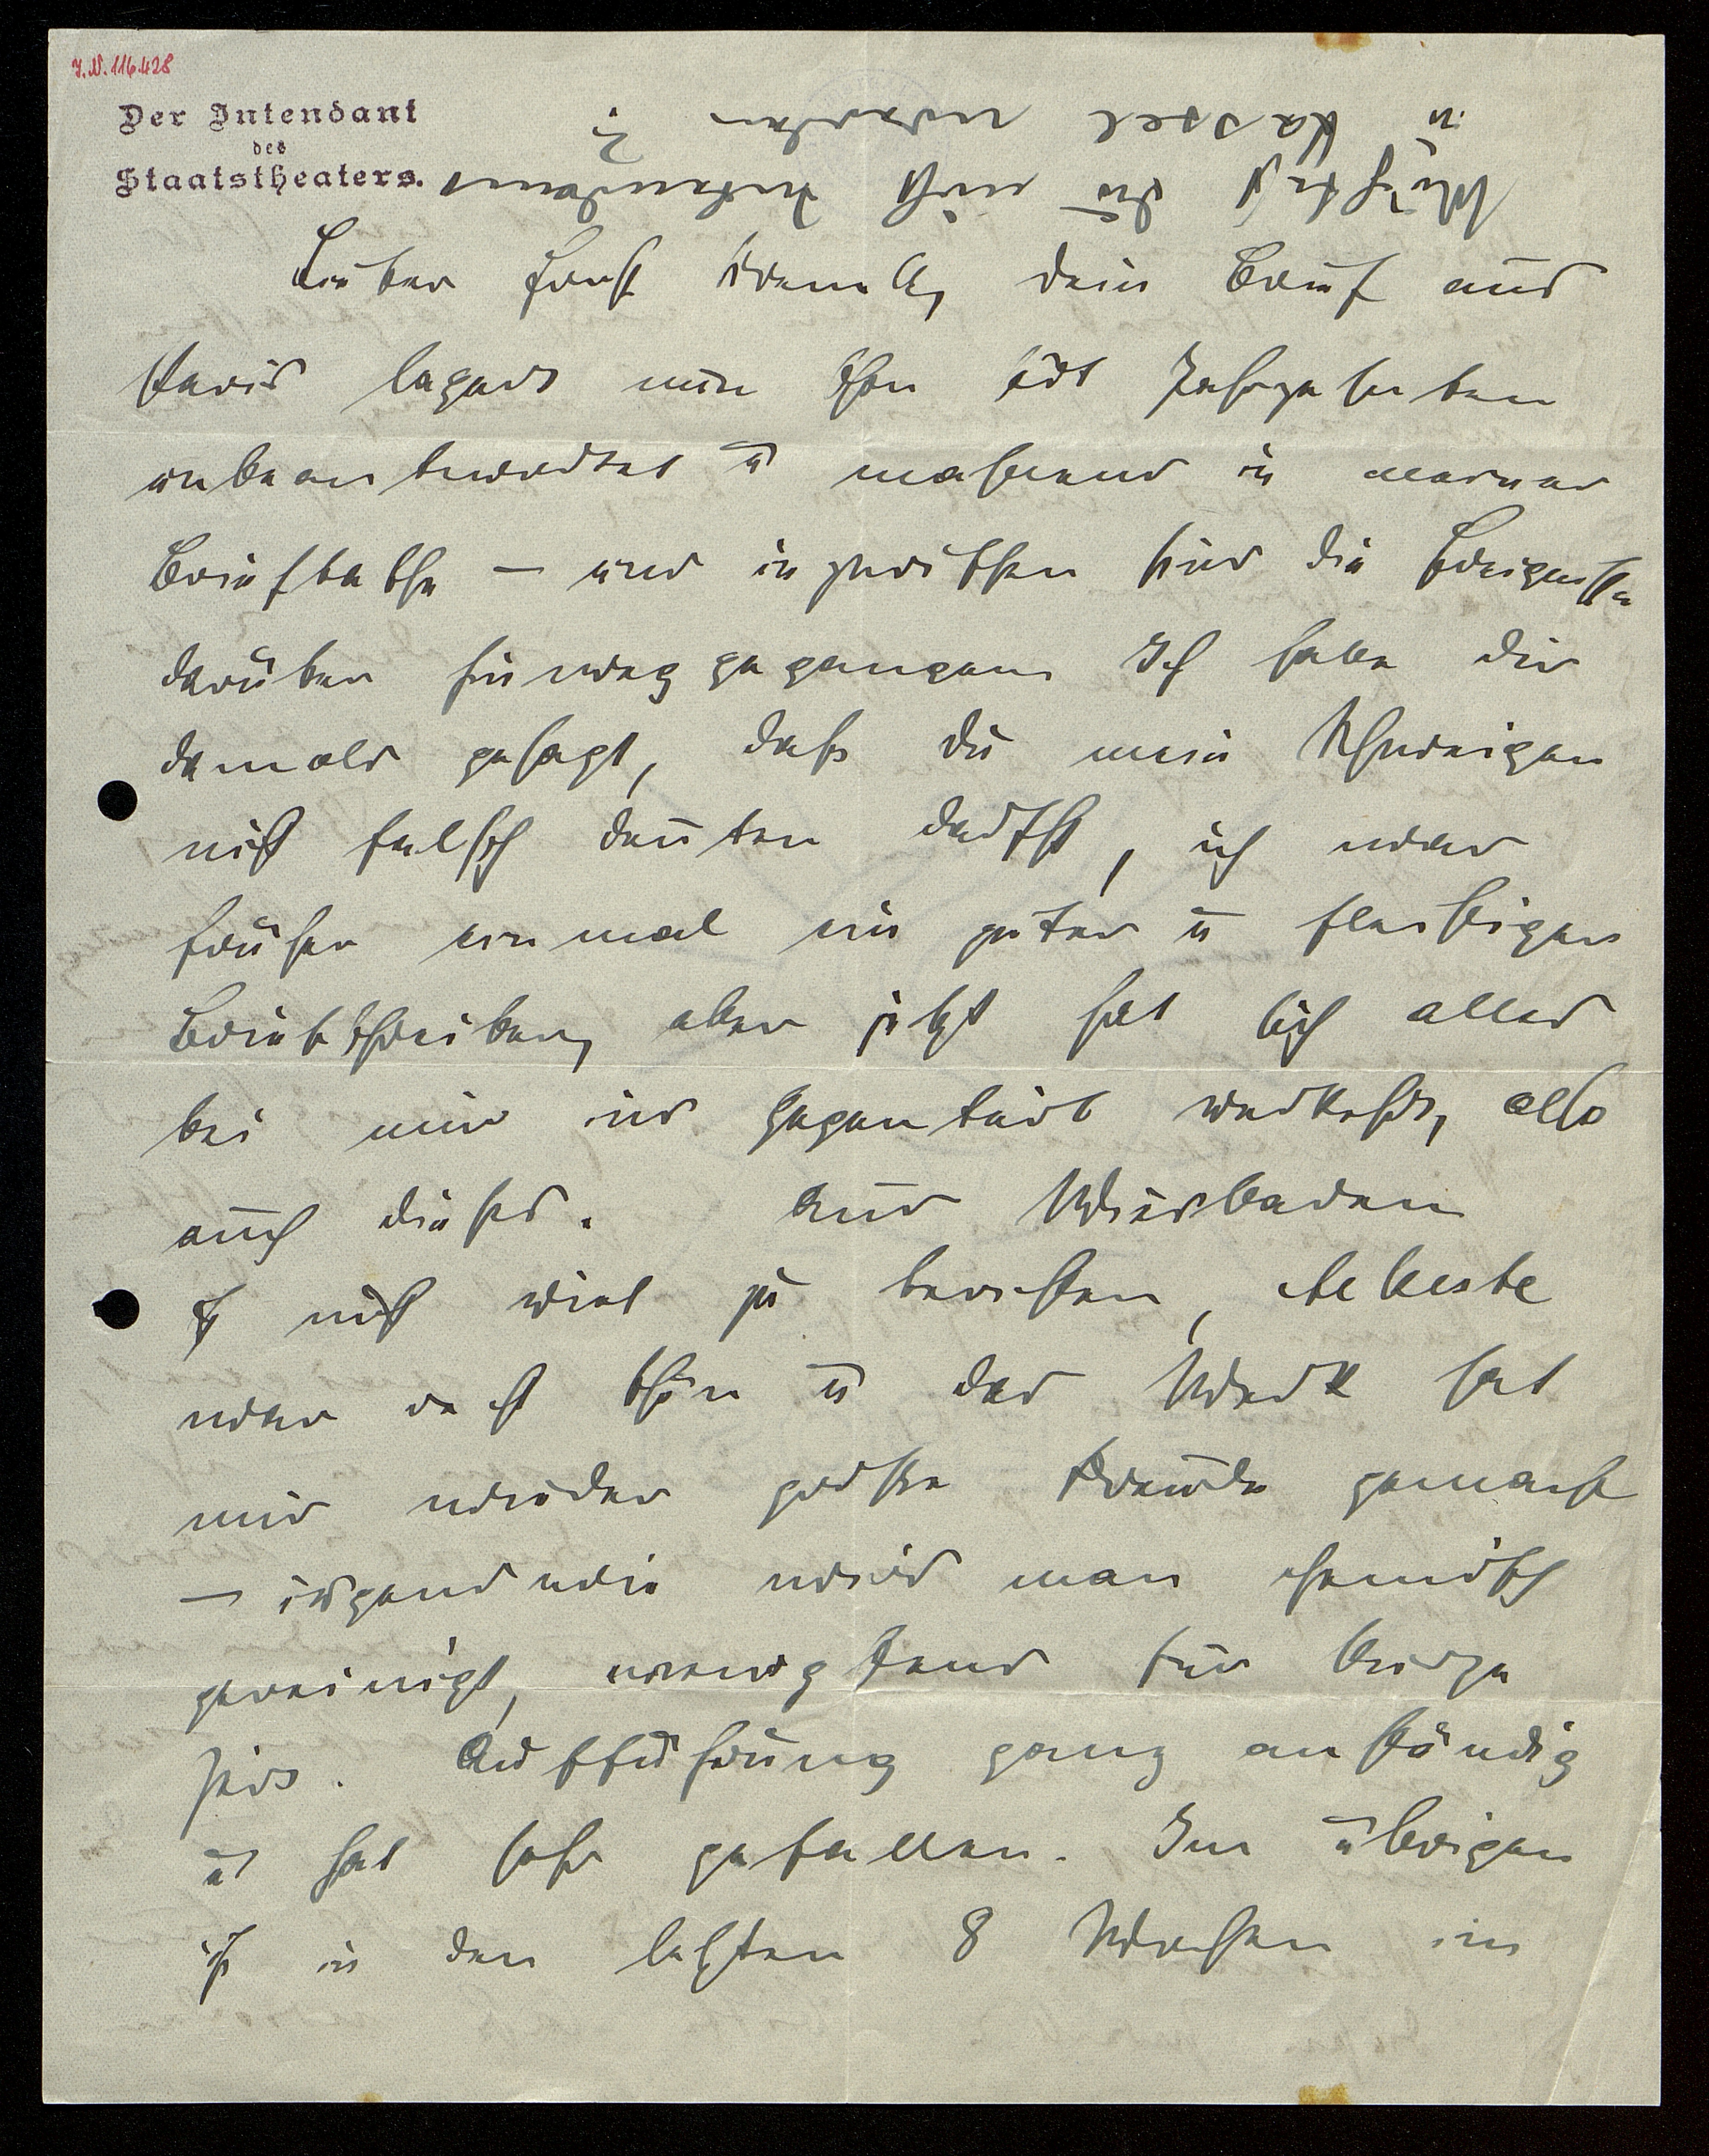 J.N. 116.428
Der Intendant
des
Staatstheaters.
Möchtest du nicht Intendant
in Kassel werden?
Lieber Ernst Krenek, dein Brief aus
Paris lagert nun schon seit
unbeantwortet u mahnend in meiner
Brieftasche – und inzwischen sind die Ereignisse
darüber hinweggegangen Ich habe dir
damals gesagt, dass du mein Schweigen
nicht falsch deuten darfst, ich war
früher einmal ein guter u fleissiger
Briefschreiber, aber jetzt hat sich alles
bei mir ins Gegenteil verkehrt, also
auch dieses. Aus Wiesbaden
ist nicht viel zu berichten, Alkeste
war recht schön u das Werk hat
mir wieder grosse Freude gemacht
– irgendwie wird man chemisch
gereinigt, wenigstens für kurze
Zeit. Aufführung ganz anständig
u hat sehr gefallen. Im übrigen
ist in den letzten 8 Wochen im